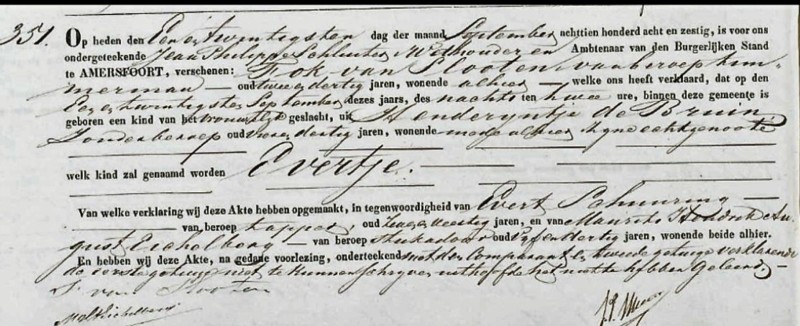 351.
Op heden den Een en twintigsten dag der maand September achttien honderd acht en zestig, is voor ons
ondergeteekende Jean Philippe Wethouder en Ambtenaar van den Burgerlijken Stand
te AMERSFOORT, verschenen: Fok van Slooten van beroep tim-
merman — oud twee dertig jaren, wonende alhier — welke ons heeft verklaard, dat op den
Een en twintigsten September dezes jaars, des nachts ten twee ure, binnen deze gemeente is
geboren een kind van het vrouwelijk geslacht, uit Henderijntje de Bruin
zonder beroep oud dertig jaren, wonende mede alhier zijne echtgenoote
welk kind zal genaamd worden Evertje.
Van welke verklaring wij deze Akte hebben opgemaakt, in tegenwoordigheid van Evert Schuuring
van beroep tapper, oud jaren, en van Maurits Hendrik Au-
gust — van beroep Stukadoor oud dertig jaren, wonende beide alhier.
En hebben wij deze Akte, na gedane voorlezing, onderteekend met den Comparant en tweede getuige verklarende
de eerste getuige niet te kunnen schrijven uit hoofde het niet te hebben geleerd.
F. van Slooten